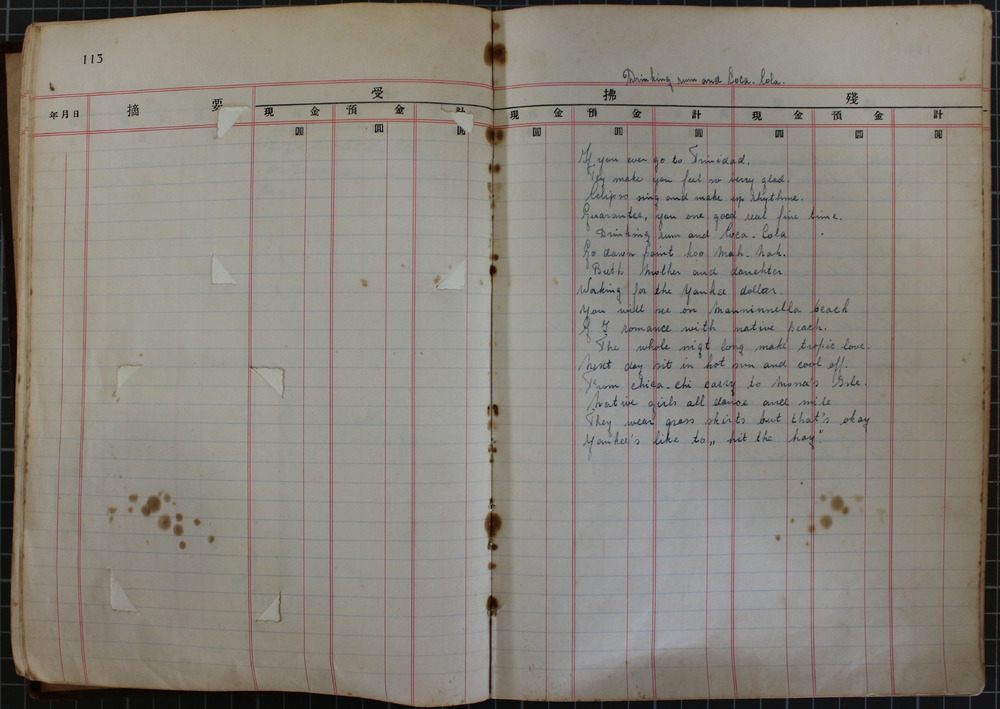 113
年月日
摘要
受
現金
預金
計
圓
圓
圓
Drinking rum and Coca-Cola.
拂
殘
現金
預金
計
現金
預金
計
圓
圓
圓
圓
圓
If you ever go to Trinidad.
Tey make you feel so verry glad.
Calipso sing and make up rhythme.
Guarantee, you one good real fine time.
Drinking rum and Coca-Cola
Go down point koo mah-nah.
Buth mother and daughter
Working for the Yankee dollar.
You will see on Manninnella beach
G. I romance with native peach.
The whole nigt long make tropic love.
Next day sit in hot sun and cool off.
From chica-chi carry to Mona's Isle.
Native girls all dance and mile
They wear grass skirts but that's okay
Yankee's like to „ hit the hay"